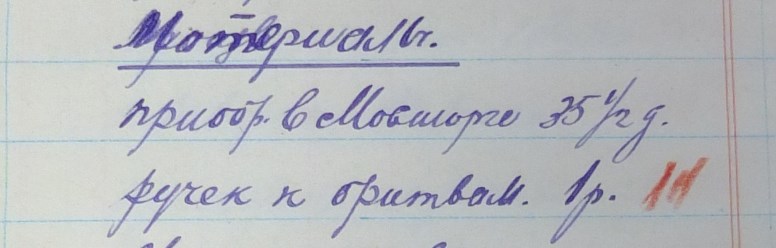 Материалы.
приобр. в Мосторге 35 1/2 д.
ручек к бритвам. 1 р. 14